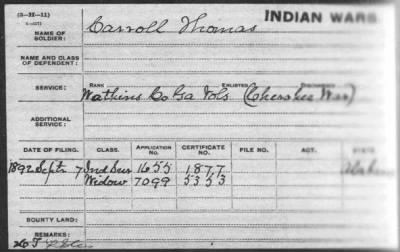 (3—31—11) INDIAN WARS
NAME OF SOLDIER: Carroll Thomas
NAME AND CLASS OF DEPENDENT:
RANK ENLISTED DISCHARGED
SERVICE: Watkins Co Ga Vols (Cherokee War)
ADDITIONAL SERVICE:
DATE OF FILING. CLASS. APPLICATION NO. CERTIFICATE NO. FILE NO. ACT. STATE
1892 Sept 7 Ind Sur 1655 1877
Widow 7099 5353
BOUNTY LAND:
REMARKS: